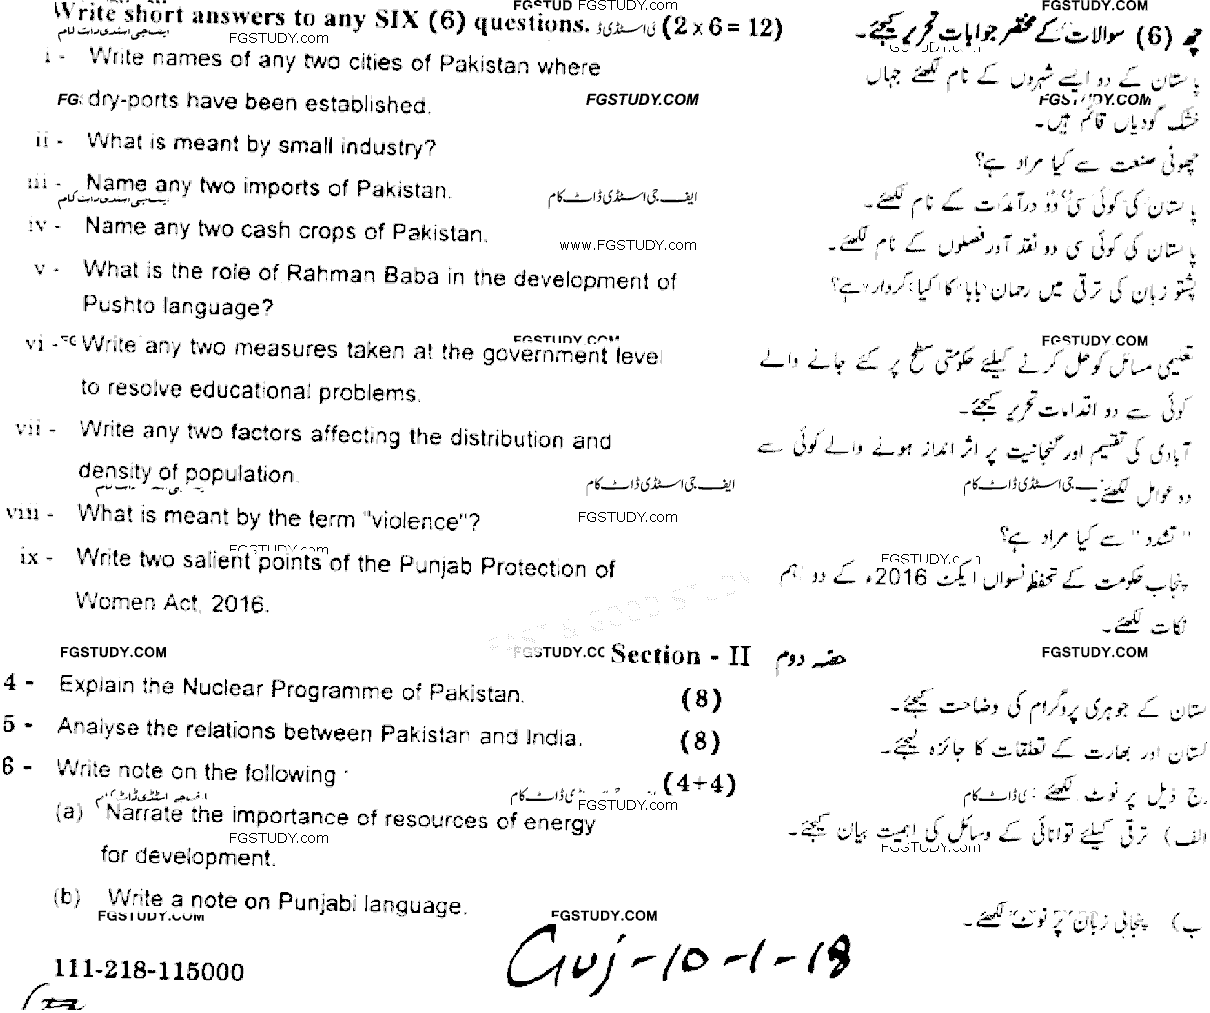 Write short answers to any SIX (6) questions. (2 x 6 = 12) چھ (6) سوالات کے مختصر جوابات تحریر کیجئے۔
FGSTUDY.com
i - Write names of any two cities of Pakistan where پاکستان کے دو ایسے شہروں کے نام لکھئے جہاں
dry-ports have been established. خشک گودیاں قائم ہیں۔
FGSTUDY.COM FGSTUDY.COM
ii - What is meant by small industry? چھوٹی صنعت سے کیا مراد ہے؟
iii - Name any two imports of Pakistan. پاکستان کی کوئی سی دو درآمدات کے نام لکھئے۔
ایف جی اسٹڈی ڈاٹ کام
iv - Name any two cash crops of Pakistan. پاکستان کی کوئی سی دو نقد آور فصلوں کے نام لکھئے۔
www.FGSTUDY.com
v - What is the role of Rahman Baba in the development of پشتو زبان کی ترقی میں رحمان بابا کا کیا کردار ہے؟
Pushto language?
FGSTUDY.COM FGSTUDY.COM
vi - Write any two measures taken at the government level تعلیمی مسائل کو حل کرنے کیلئے حکومتی سطح پر کئے جانے والے
to resolve educational problems. کوئی سے دو اقدامات تحریر کیجئے۔
vii - Write any two factors affecting the distribution and آبادی کی تقسیم اور گنجانیت پر اثر انداز ہونے والے کوئی سے
density of population. دو عوامل لکھئے۔
ایف جی اسٹڈی ڈاٹ کام
viii - What is meant by the term "violence"? "تشدد" سے کیا مراد ہے؟
FGSTUDY.com
ix - Write two salient points of the Punjab Protection of پنجاب حکومت کے تحفظ نسواں ایکٹ 2016ء کے دو اہم
Women Act, 2016. نکات لکھئے۔
FAST & GOOD STUDY
FGSTUDY.COM Section - II حصہ دوم FGSTUDY.COM
4 - Explain the Nuclear Programme of Pakistan. (8) پاکستان کے جوہری پروگرام کی وضاحت کیجئے۔
5 - Analyse the relations between Pakistan and India. (8) پاکستان اور بھارت کے تعلقات کا جائزہ لیجئے۔
6 - Write note on the following : (4+4) درج ذیل پر نوٹ لکھئے :
FGSTUDY.com
(a) Narrate the importance of resources of energy الف) ترقی کیلئے توانائی کے وسائل کی اہمیت بیان کیجئے۔
FGSTUDY.com
for development.
(b) Write a note on Punjabi language. ب) پنجابی زبان پر نوٹ لکھئے۔
FGSTUDY.COM FGSTUDY.COM FGSTUDY.COM
111-218-115000 Guj-10-1-18